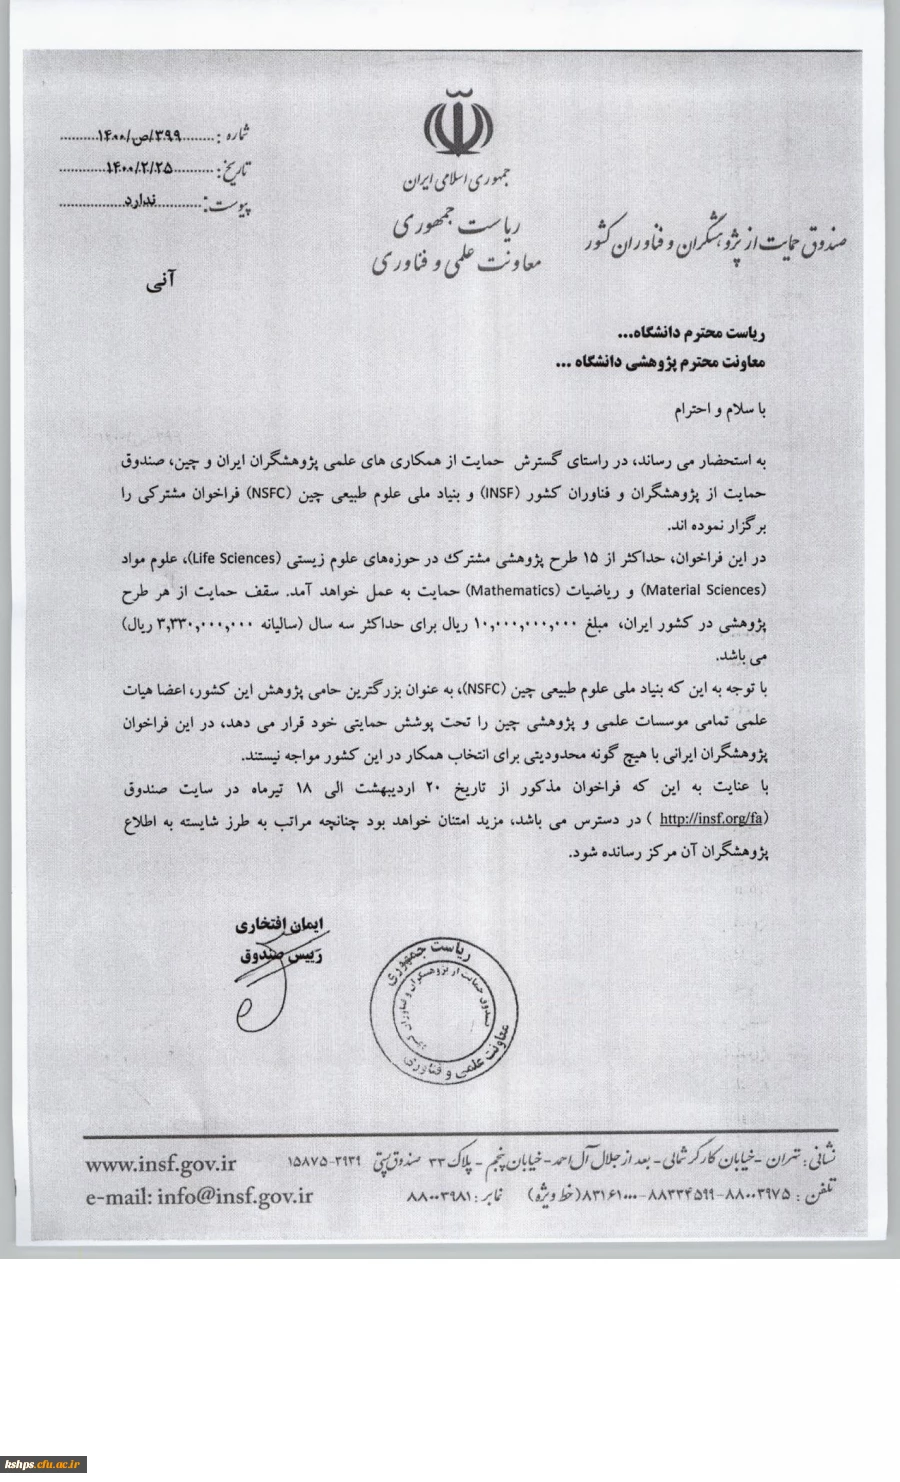 جمهوری اسلامی ایران
ریاست جمهوری
معاونت علمی و فناوری
صندوق حمایت از پژوهشگران و فناوران کشور
شماره : ........۳۹۹/ص/۱۴۰۰..........
تاریخ: ...........۱۴۰۰/۲/۲۵............
پیوست: ............ندارد..................
آنی
ریاست محترم دانشگاه...
معاونت محترم پژوهشی دانشگاه ...
با سلام و احترام
به استحضار می رساند، در راستای گسترش حمایت از همکاری های علمی پژوهشگران ایران و چین، صندوق
حمایت از پژوهشگران و فناوران کشور (INSF) و بنیاد ملی علوم طبیعی چین (NSFC) فراخوان مشترکی را
برگزار نموده اند.
در این فراخوان، حداکثر از ۱۵ طرح پژوهشی مشترک در حوزه‌های علوم زیستی (Life Sciences)، علوم مواد
(Material Sciences) و ریاضیات (Mathematics) حمایت به عمل خواهد آمد. سقف حمایت از هر طرح
پژوهشی در کشور ایران، مبلغ ۱۰,۰۰۰,۰۰۰,۰۰۰ ریال برای حداکثر سه سال (سالیانه ۳,۳۳۰,۰۰۰,۰۰۰ ریال)
می باشد.
با توجه به این که بنیاد ملی علوم طبیعی چین (NSFC)، به عنوان بزرگترین حامی پژوهش این کشور، اعضا هیات
علمی تمامی موسسات علمی و پژوهشی چین را تحت پوشش حمایتی خود قرار می دهد، در این فراخوان
پژوهشگران ایرانی با هیچ گونه محدودیتی برای انتخاب همکار در این کشور مواجه نیستند.
با عنایت به این که فراخوان مذکور از تاریخ ۲۰ اردیبهشت الی ۱۸ تیرماه در سایت صندوق
(http://insf.org/fa ) در دسترس می باشد، مزید امتنان خواهد بود چنانچه مراتب به طرز شایسته به اطلاع
پژوهشگران آن مرکز رسانده شود.
ایمان افتخاری
رییس صندوق
ریاست جمهوری
صندوق حمایت از پژوهشگران و فناوران کشور
معاونت علمی و فناوری
نشانی: تهران - خیابان کارگر شمالی - بعد از جلال آل احمد - خیابان پنجم - پلاک ۳۳ صندوق پستی ۱۵۸۷۵-۳۹۳۹
www.insf.gov.ir
تلفن : ۸۸۰۰۳۹۷۵-۸۸۳۳۴۵۹۹-۸۳۱۶۱۰۰۰(خط ویژه) نمابر: ۸۸۰۰۳۹۸۱
e-mail: info@insf.gov.ir
kshps.cfu.ac.ir